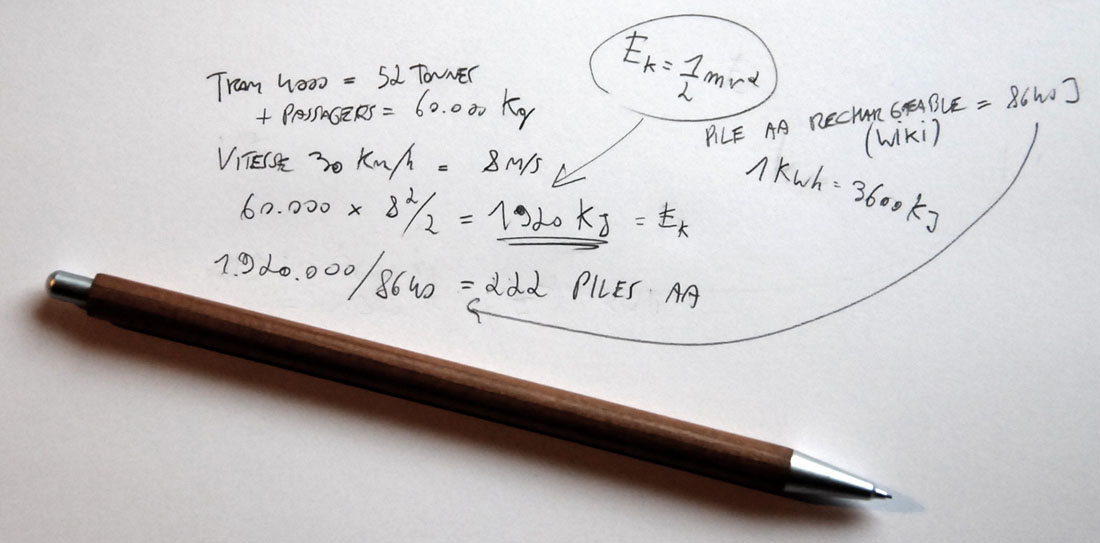 TRAM 4000 = 52 TONNES
+ PASSAGERS = 60.000 Kg
VITESSE 30 Km/h = 8 M/S
60.000 × 8²/2 = 1920 KJ = Ek
1.920.000/8640 = 222 PILES AA
Ek = 1/2 mv²
PILE AA RECHARGEABLE = 8640 J
(WIKI)
1 KWh = 3600 KJ